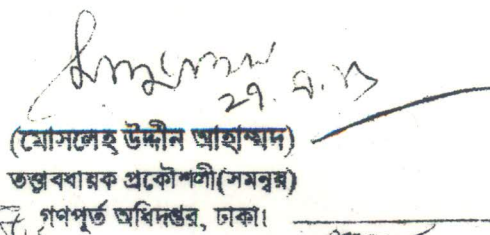 ২৭.৭.১৭
(মোসলেহ উদ্দীন আহাম্মদ)
তত্ত্বাবধায়ক প্রকৌশলী(সমন্বয়)
গণপূর্ত অধিদপ্তর, ঢাকা।